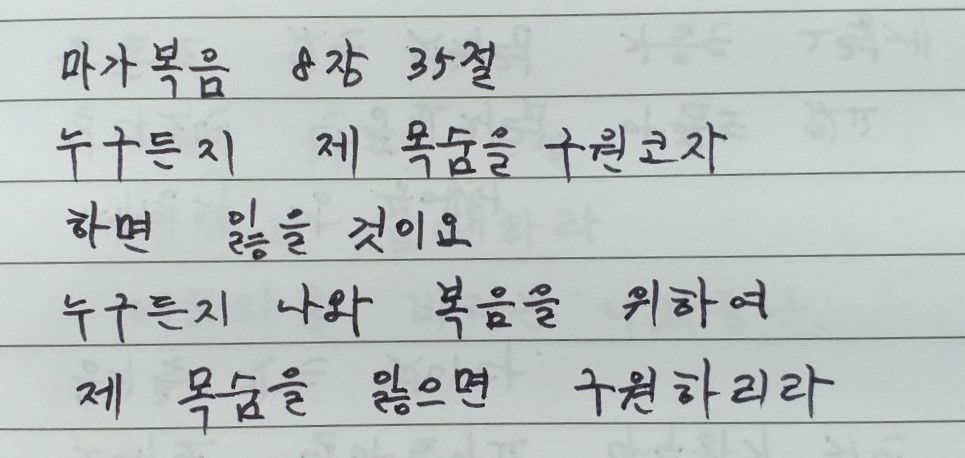 마가복음 8장 35절
누구든지 제 목숨을 구원코자
하면 잃을 것이요
누구든지 나와 복음을 위하여
제 목숨을 잃으면 구원하리라